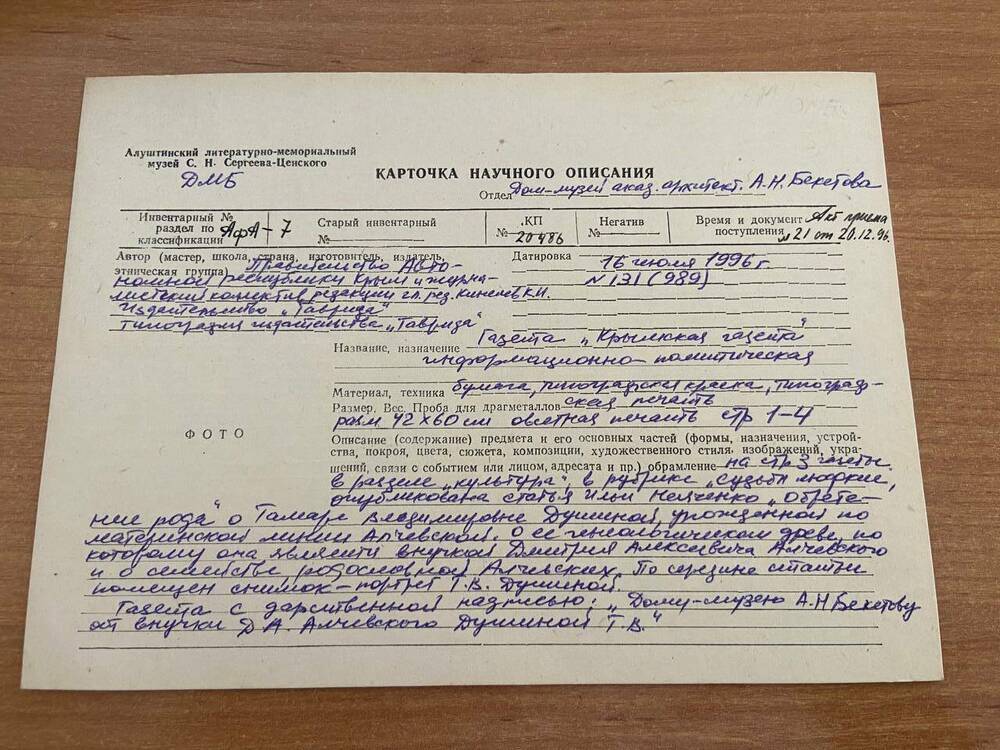 Алуштинский литературно-мемориальный
музей С. Н. Сергеева-Ценского
ДМБ
КАРТОЧКА НАУЧНОГО ОПИСАНИЯ
Отдел Дом-музей акад. архитект. А.Н. Бекетова
Инвентарный № раздел по классификации АфА-7
Старый инвентарный №
КП № 20486
Негатив №
Время и документ поступления Акт приема №21 от 20.12.96.
Автор (мастер, школа, страна, изготовитель, издатель,
этническая группа) Правительство Авто-
номной республики Крым и журна-
листский коллектив редакции гл. ред. Кинелев К.И.
Издательство „Таврида"
типография издательства „Таврида"
Датировка 16 июля 1996 г
№ 131 (989)
Название, назначение Газета „Крымская газета"
информационно-политическая
Материал, техника бумага, типографская краска, типограф-
ская печать
Размер, Вес. Проба для драгметаллов
разм 42×60 см цветная печать стр 1-4
ФОТО
Описание (содержание) предмета и его основных частей (формы, назначения, устрой-
ства, покроя, цвета, сюжета, композиции, художественного стиля, изображений, укра-
шений, связи с событием или лицом, адресата и пр.) обрамление на стр 3 газеты
в разделе „культура" в рубрике „судьбы людские,
опубликована статья Ильи „Обрете-
ние рода" о Тамаре Владимировне Душиной, урожденной по
материнской линии Алчевской. О её генеологическом древе, по
которому она является внучкой Дмитрия Алексеевича Алчевского
и о семействе родословной Алчевских. По середине статьи
помещен снимок-портрет Т.В. Душиной.
Газета с дарственной надписью: „Дому-музею А.Н Бекетову
от внучки Д А. Алчевского Душиной Т.В."